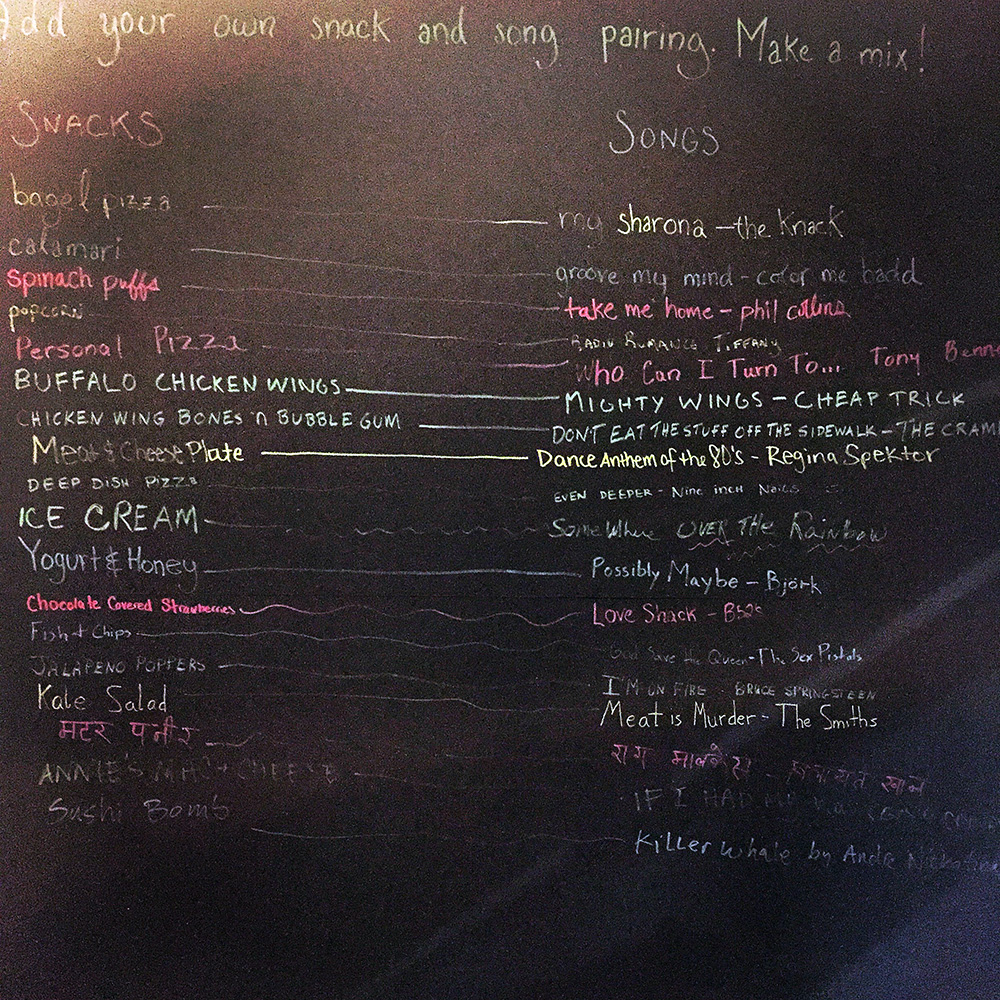 Add your own snack and song pairing. Make a mix!
SNACKS SONGS
bagel pizza my sharona - the Knack
calamari groove my mind - color me badd
spinach puffs take me home - phil collins
popcorn RADIO ROMANCE, TIFFANY
Personal Pizza Who Can I Turn To... Tony Benn
BUFFALO CHICKEN WINGS MIGHTY WINGS - CHEAP TRICK
CHICKEN WING BONES 'n BUBBLE GUM DON'T EAT THE STUFF OFF THE SIDEWALK - THE CRAM
Meat & Cheese Plate Dance Anthem of the 80's - Regina Spektor
DEEP DISH PIZZA EVEN DEEPER - Nine inch Nails
ICE CREAM SomeWhere OVER THE Rainbow
Yogurt & Honey Possibly Maybe - Björk
Chocolate Covered Strawberries Love Shack - B52s
Fish + Chips God Save the Queen - The Sex Pistols
JALAPENO POPPERS I'M ON FIRE - BRUCE SPRINGSTEEN
Kale Salad Meat is Murder - The Smiths
मटर पनीर राग
ANNIE'S MAC + CHEESE IF I HAD
Sushi Bomb Killer whale by Andre